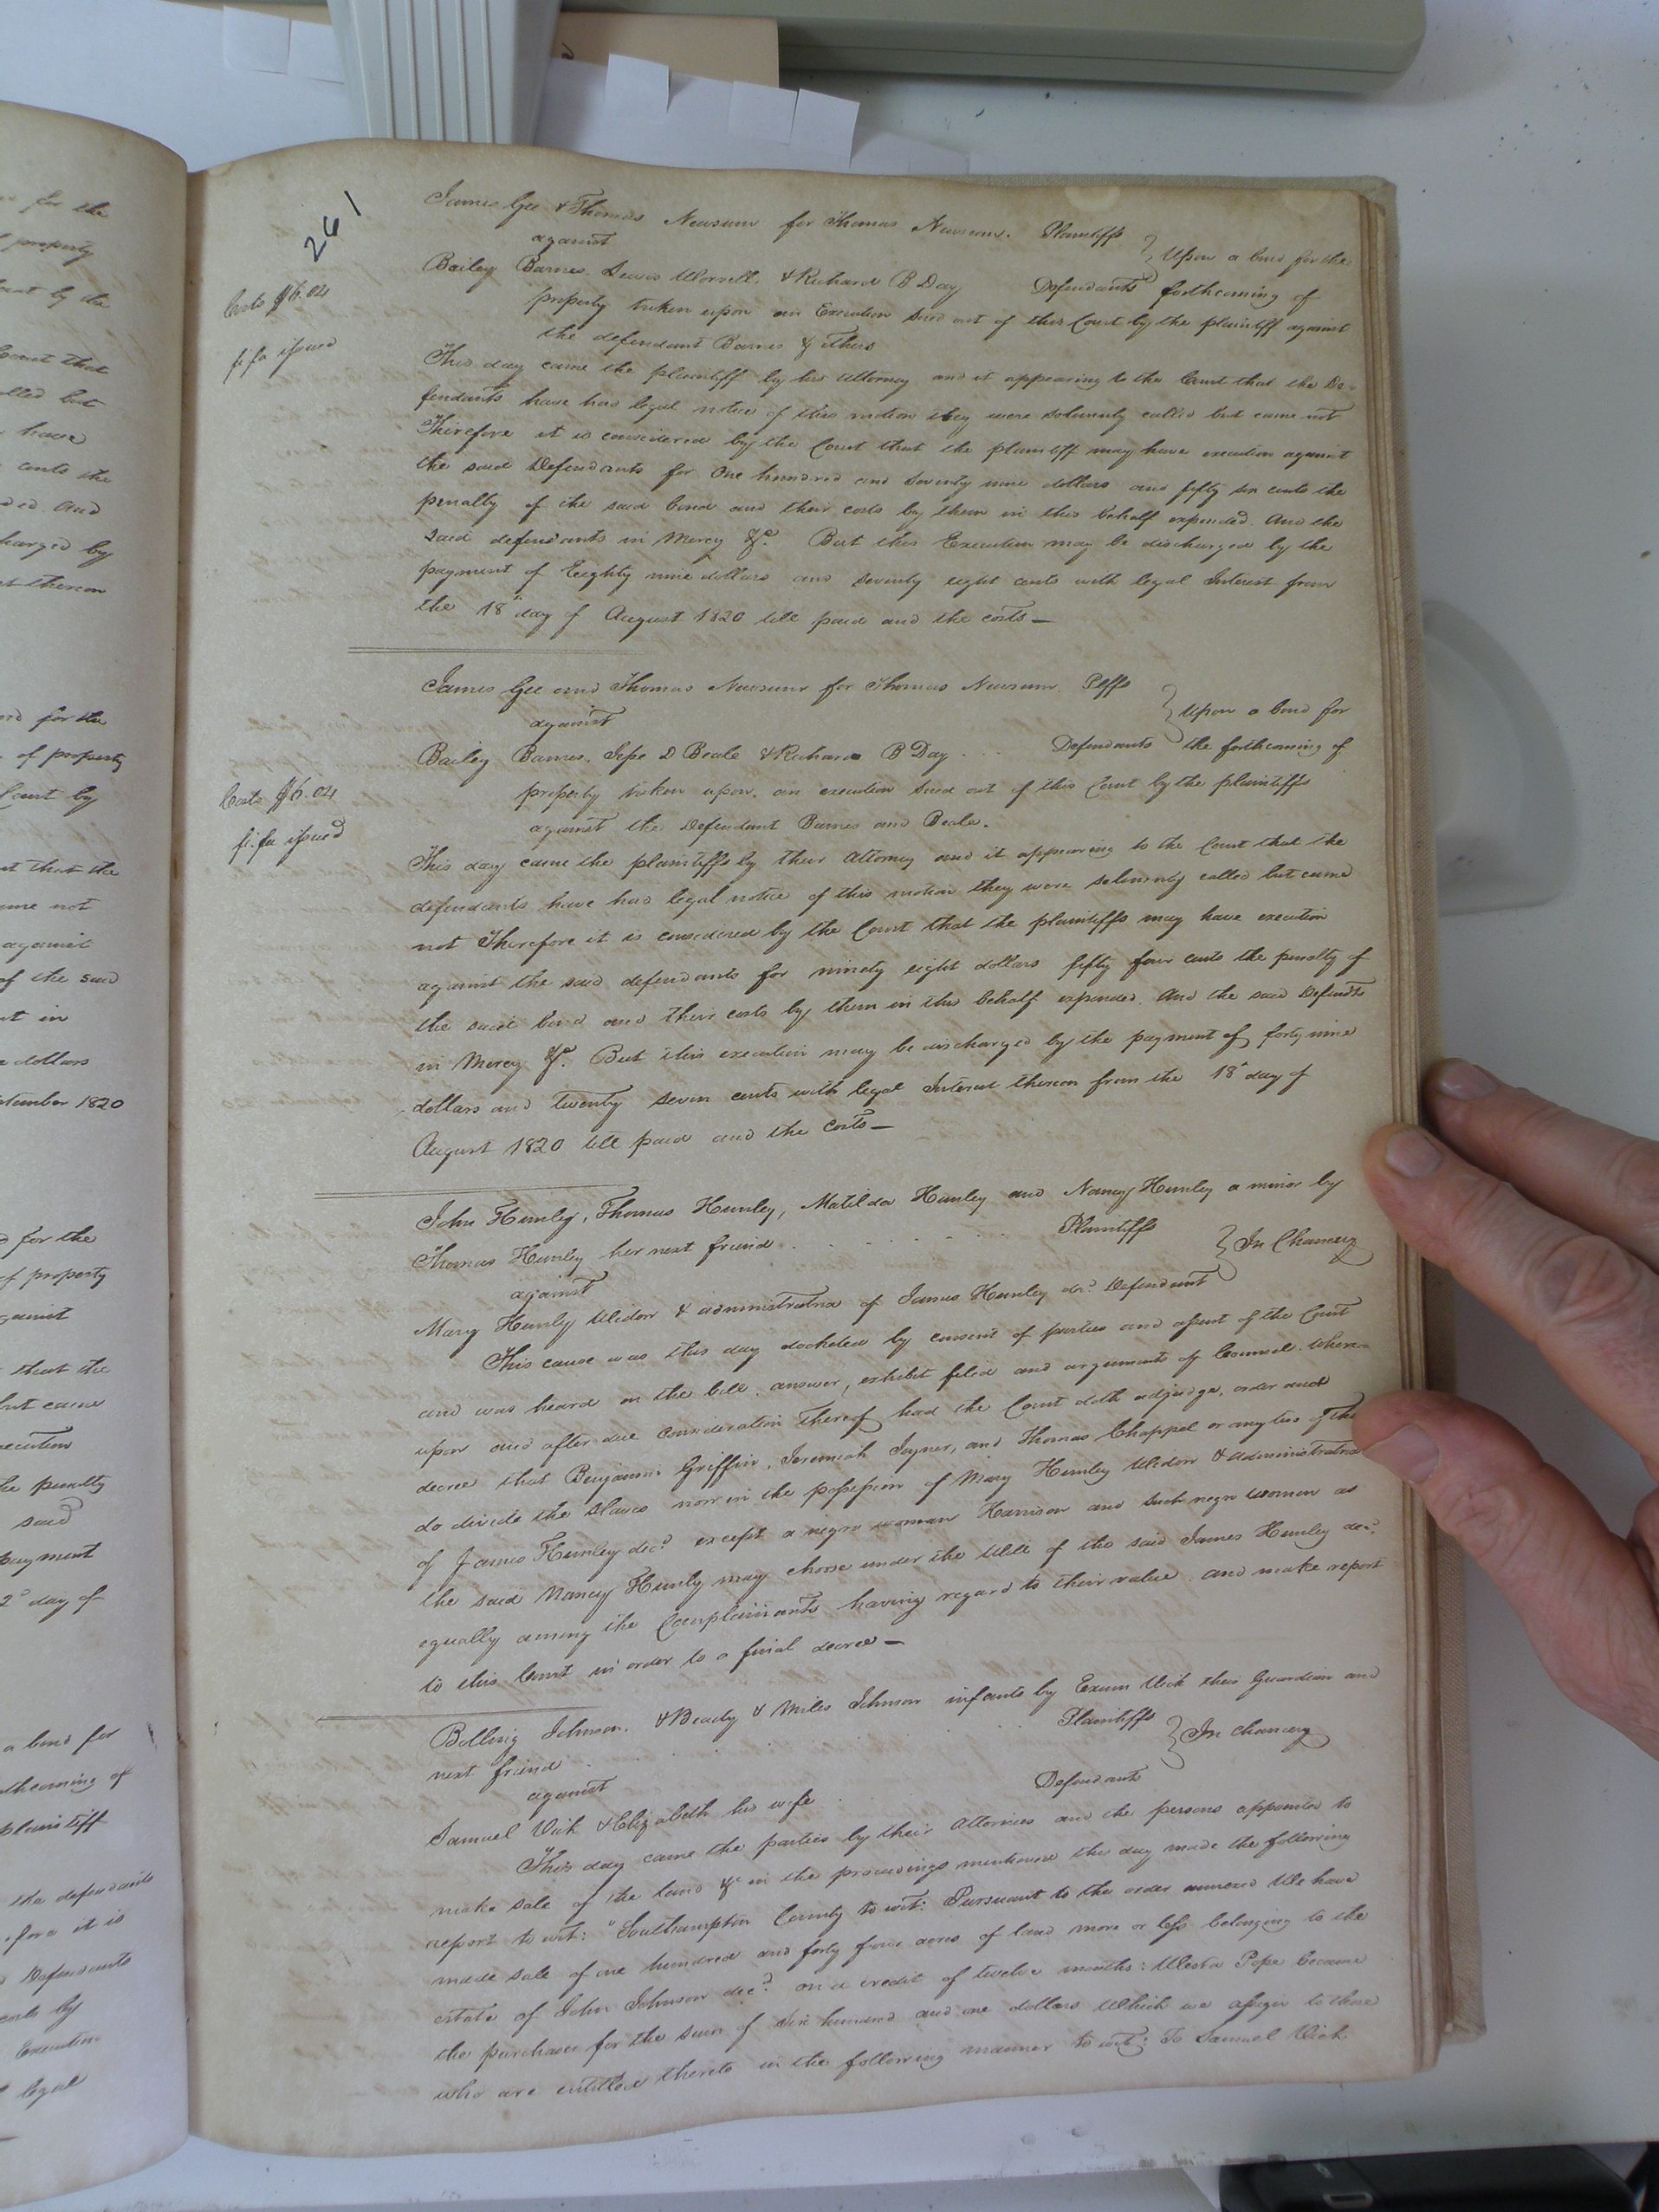 261
James Gee & Thomas Newsum for Thomas Newsum. Plaintiffs
against
Upon a bond for the
Bailey Barnes, Lewis Worrell, & Richard B Day Defendants forthcoming of
property taken upon an Execution sued out of this Court by the plaintiff against
the defendant Barnes & others
Costs $6.04
fi fa issued
This day came the plaintiff by his attorney and it appearing to the Court that the De-
fendants have had legal notice of this motion they were solemnly called but came not
Therefore it is considered by the Court that the plaintiff may have execution against
the said Defendants for One hundred and seventy nine dollars and fifty six cents the
penalty of the said bond and their costs by them in this behalf expended. And the
said defendants in Mercy &c. But this Execution may be discharged by the
payment of Eighty nine dollars and seventy eight cents with legal Interest from
the 18th day of August 1820 till paid and the costs—
James Gee and Thomas Newsum for Thomas Newsum. Plffs
against
Upon a bond for
Bailey Barnes, Jesse D Beale & Richard B Day . . . Defendants the forthcoming of
property taken upon, an execution sued out of this Court by the plaintiffs
against the Defendant Barnes and Beale.
Costs $6.04
fi. fa issued
This day came the plaintiffs by their attorney and it appearing to the Court that the
defendants have had legal notice of this motion they were solemnly called but came
not Therefore it is considered by the Court that the plaintiffs may have execution
against the said defendants for ninety eight dollars fifty four cents the penalty of
the said bond and their costs by them in this behalf expended. And the said Defendts
in Mercy &c. But this execution may be discharged by the payment of forty nine
dollars and twenty seven cents with legal Interest thereon from the 18th day of
August 1820 till paid and the costs—
John Hunley, Thomas Hunley, Matilda Hunley and Nancy Hunley a minor by
Thomas Hunley her next friend . . . . . . Plaintiffs
against
In Chancery
Mary Hunly Widow & administratrix of James Hunley decd. Defendant
This cause was this day docketed by consent of parties and assent of the Court
and was heard on the bill, answer, exhibit filed and arguments of Counsel. where-
upon and after due consideration thereof had the Court doth adjudge, order and
decree that Benjamin Griffin, Jeremiah Joyner, and Thomas Chappel or any two of them
do divide the slaves now in the possession of Mary Hunley Widow & administratrix
of James Hunley decd. except a negro woman Harrison and such negro woman as
the said Nancy Hunly may choose under the Will of the said James Hunley decd.
equally among the Complainants having regard to their value. and make report
to this Court in order to a final decree—
Bolling Johnson, & Beady & Miles Johnson infants by Exum Vick their Guardian and
next friend . . . . . . Plaintiffs
against
In chancery
Samuel Vick & Elizabeth his wife . . . Defendants
This day came the parties by their attornies and the persons appointed to
make sale of the land &c in the proceedings mentioned this day made the following
report to wit: "Southampton County to wit: Pursuant to the order annexed We have
made sale of one hundred and forty four acres of land more or less belonging to the
estate of John Johnson decd. on a credit of twelve months: Weston Pope became
the purchaser for the sum of six hundred and one dollars Which we assign to those
who are entitled thereto in the following manner to wit: To Samuel Vick